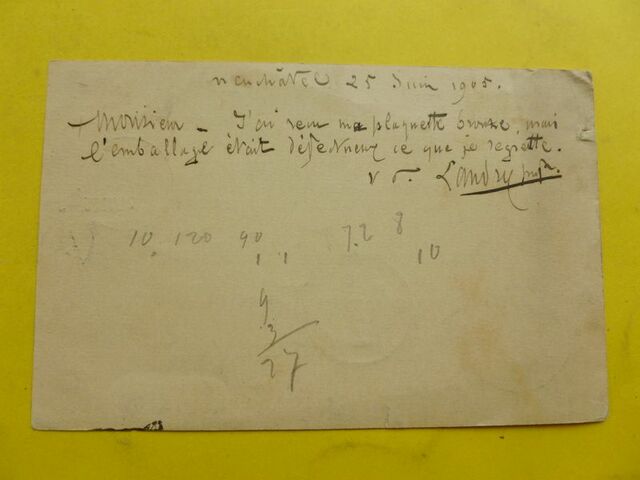 Neuchâtel 25 Juin 1905.
Monsieur – J'ai reçu ma plaquette bronze, mais
l'emballage était défectueux ce que je regrette.
Landry
10 120 90 7.2 8
1 1 10
9
3
27